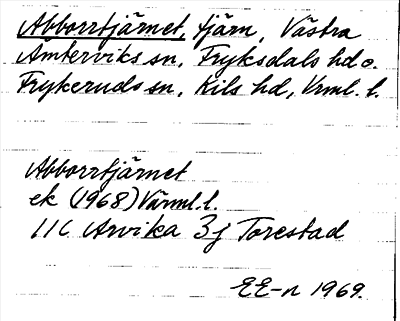 Abborrtjärnet, tjärn, Västra
Ämterviks sn, Fryksdals hd o.
Frykeruds sn, Kils hd, Vrml. l.
Abborrtjärnet
ek (1968) Värml. l.
11C Arvika 3j Torestad
EE-n 1969.